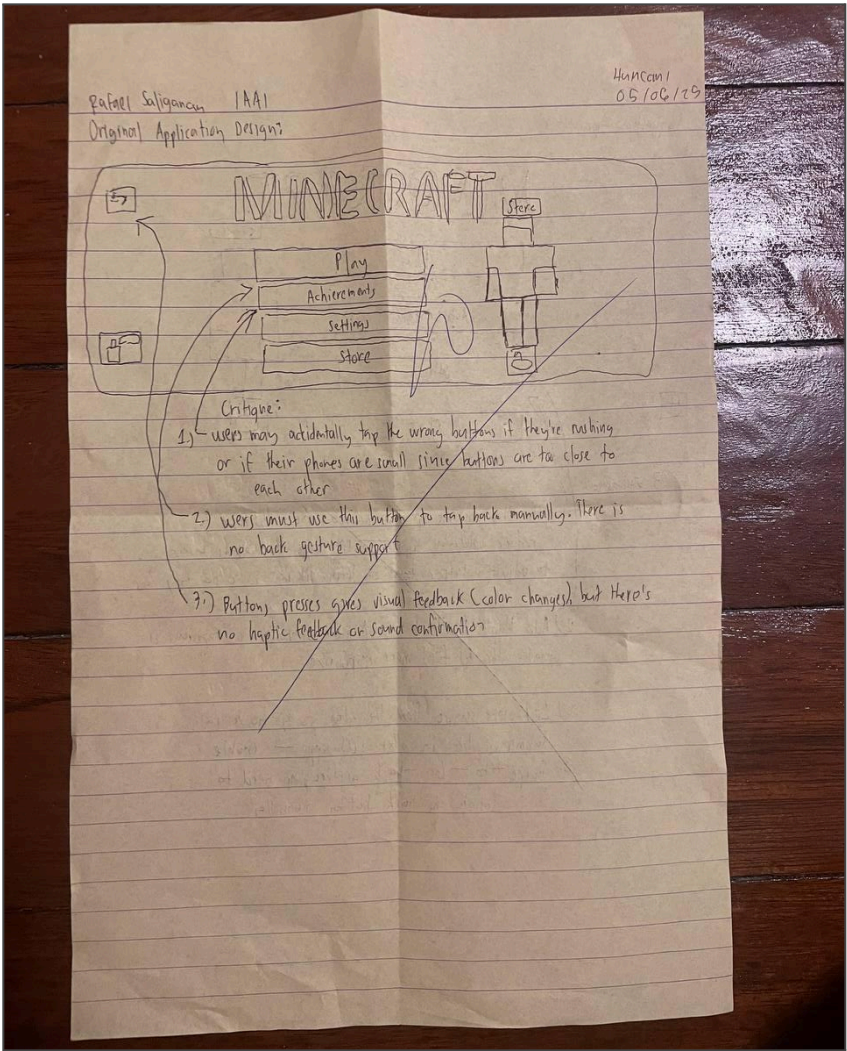 Rafael Saliganan 1AA1
4HUMCOM1
05/06/25
Original Application Design:
MINECRAFT
Steve
Play
Achievements
Settings
Store
Critique:
1.) users may accidentally tap the wrong buttons if they're rushing
or if their phones are small since buttons are too close to
each other
2.) users must use this button to tap back manually. There is
no back gesture support
3.) Buttons presses gives visual feedback (color changes) but there's
no haptic feedback or sound confirmation